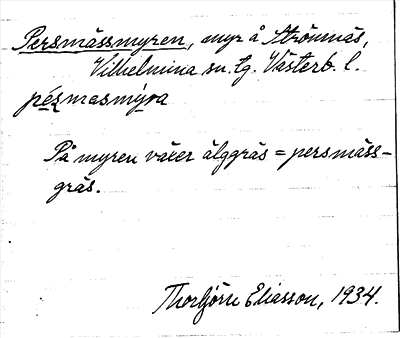 Persmässmyren, myr å Strömnäs,
Vilhelmina sn. tg. Västerb. l.
pézmasmýra
På myren växer älggräs = persmäss-
gräs.
Thorbjörn Eliasson, 1934.